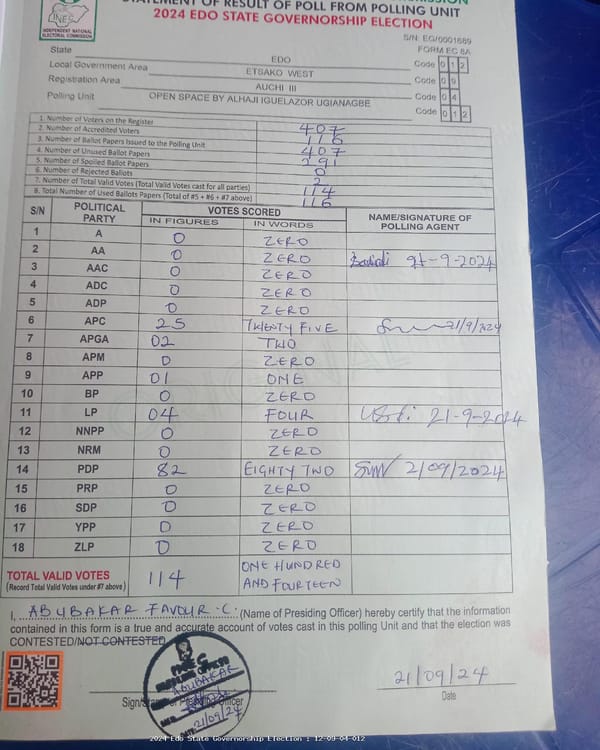 INDEPENDENT NATIONAL
ELECTORAL COMMISSION
STATEMENT OF RESULT OF POLL FROM POLLING UNIT
2024 EDO STATE GOVERNORSHIP ELECTION
S/N: EG/0001689
FORM EC 8A
State EDO Code 0 1 2
Local Government Area ETSAKO WEST Code 0 9
Registration Area AUCHI III Code 0 4
Polling Unit OPEN SPACE BY ALHAJI IGUELAZOR UGIANAGBE Code 0 1 2
1. Number of Voters on the Register 407
2. Number of Accredited Voters 116
3. Number of Ballot Papers Issued to the Polling Unit 407
4. Number of Unused Ballot Papers 291
5. Number of Spoiled Ballot Papers 0
6. Number of Rejected Ballots 2
7. Number of Total Valid Votes (Total Valid Votes cast for all parties) 114
8. Total Number of Used Ballots Papers (Total of #5 + #6 + #7 above) 116
S/N POLITICAL PARTY VOTES SCORED NAME/SIGNATURE OF POLLING AGENT
IN FIGURES IN WORDS
1 A 0 ZERO
2 AA 0 ZERO 21-9-2024
3 AAC 0 ZERO
4 ADC 0 ZERO
5 ADP 0 ZERO
6 APC 25 TWENTY FIVE 21/9/2024
7 APGA 02 TWO
8 APM 0 ZERO
9 APP 01 ONE
10 BP 0 ZERO
11 LP 04 FOUR 21-9-2024
12 NNPP 0 ZERO
13 NRM 0 ZERO
14 PDP 82 EIGHTY TWO 21/09/2024
15 PRP 0 ZERO
16 SDP 0 ZERO
17 YPP 0 ZERO
18 ZLP 0 ZERO
TOTAL VALID VOTES 114 ONE HUNDRED AND FOURTEEN
(Record Total Valid Votes under #7 above)
I, ABUBAKAR FAVOUR .C. (Name of Presiding Officer) hereby certify that the information
contained in this form is a true and accurate account of votes cast in this polling Unit and that the election was
CONTESTED/NOT CONTESTED
INEC
ABUBAKAR
21/09/24
21/09/24
Officer Date
2024 Edo State Governorship Election : 12-09-04-012